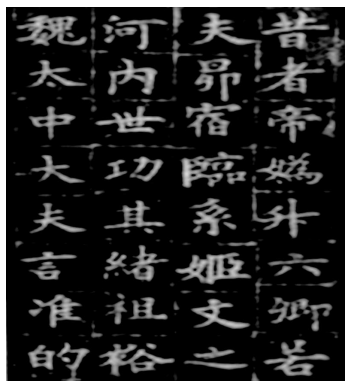 昔者帝媯升六卿若
夫昴宿臨系姬文之
河内世功其緒祖裕
魏太中大夫言准的